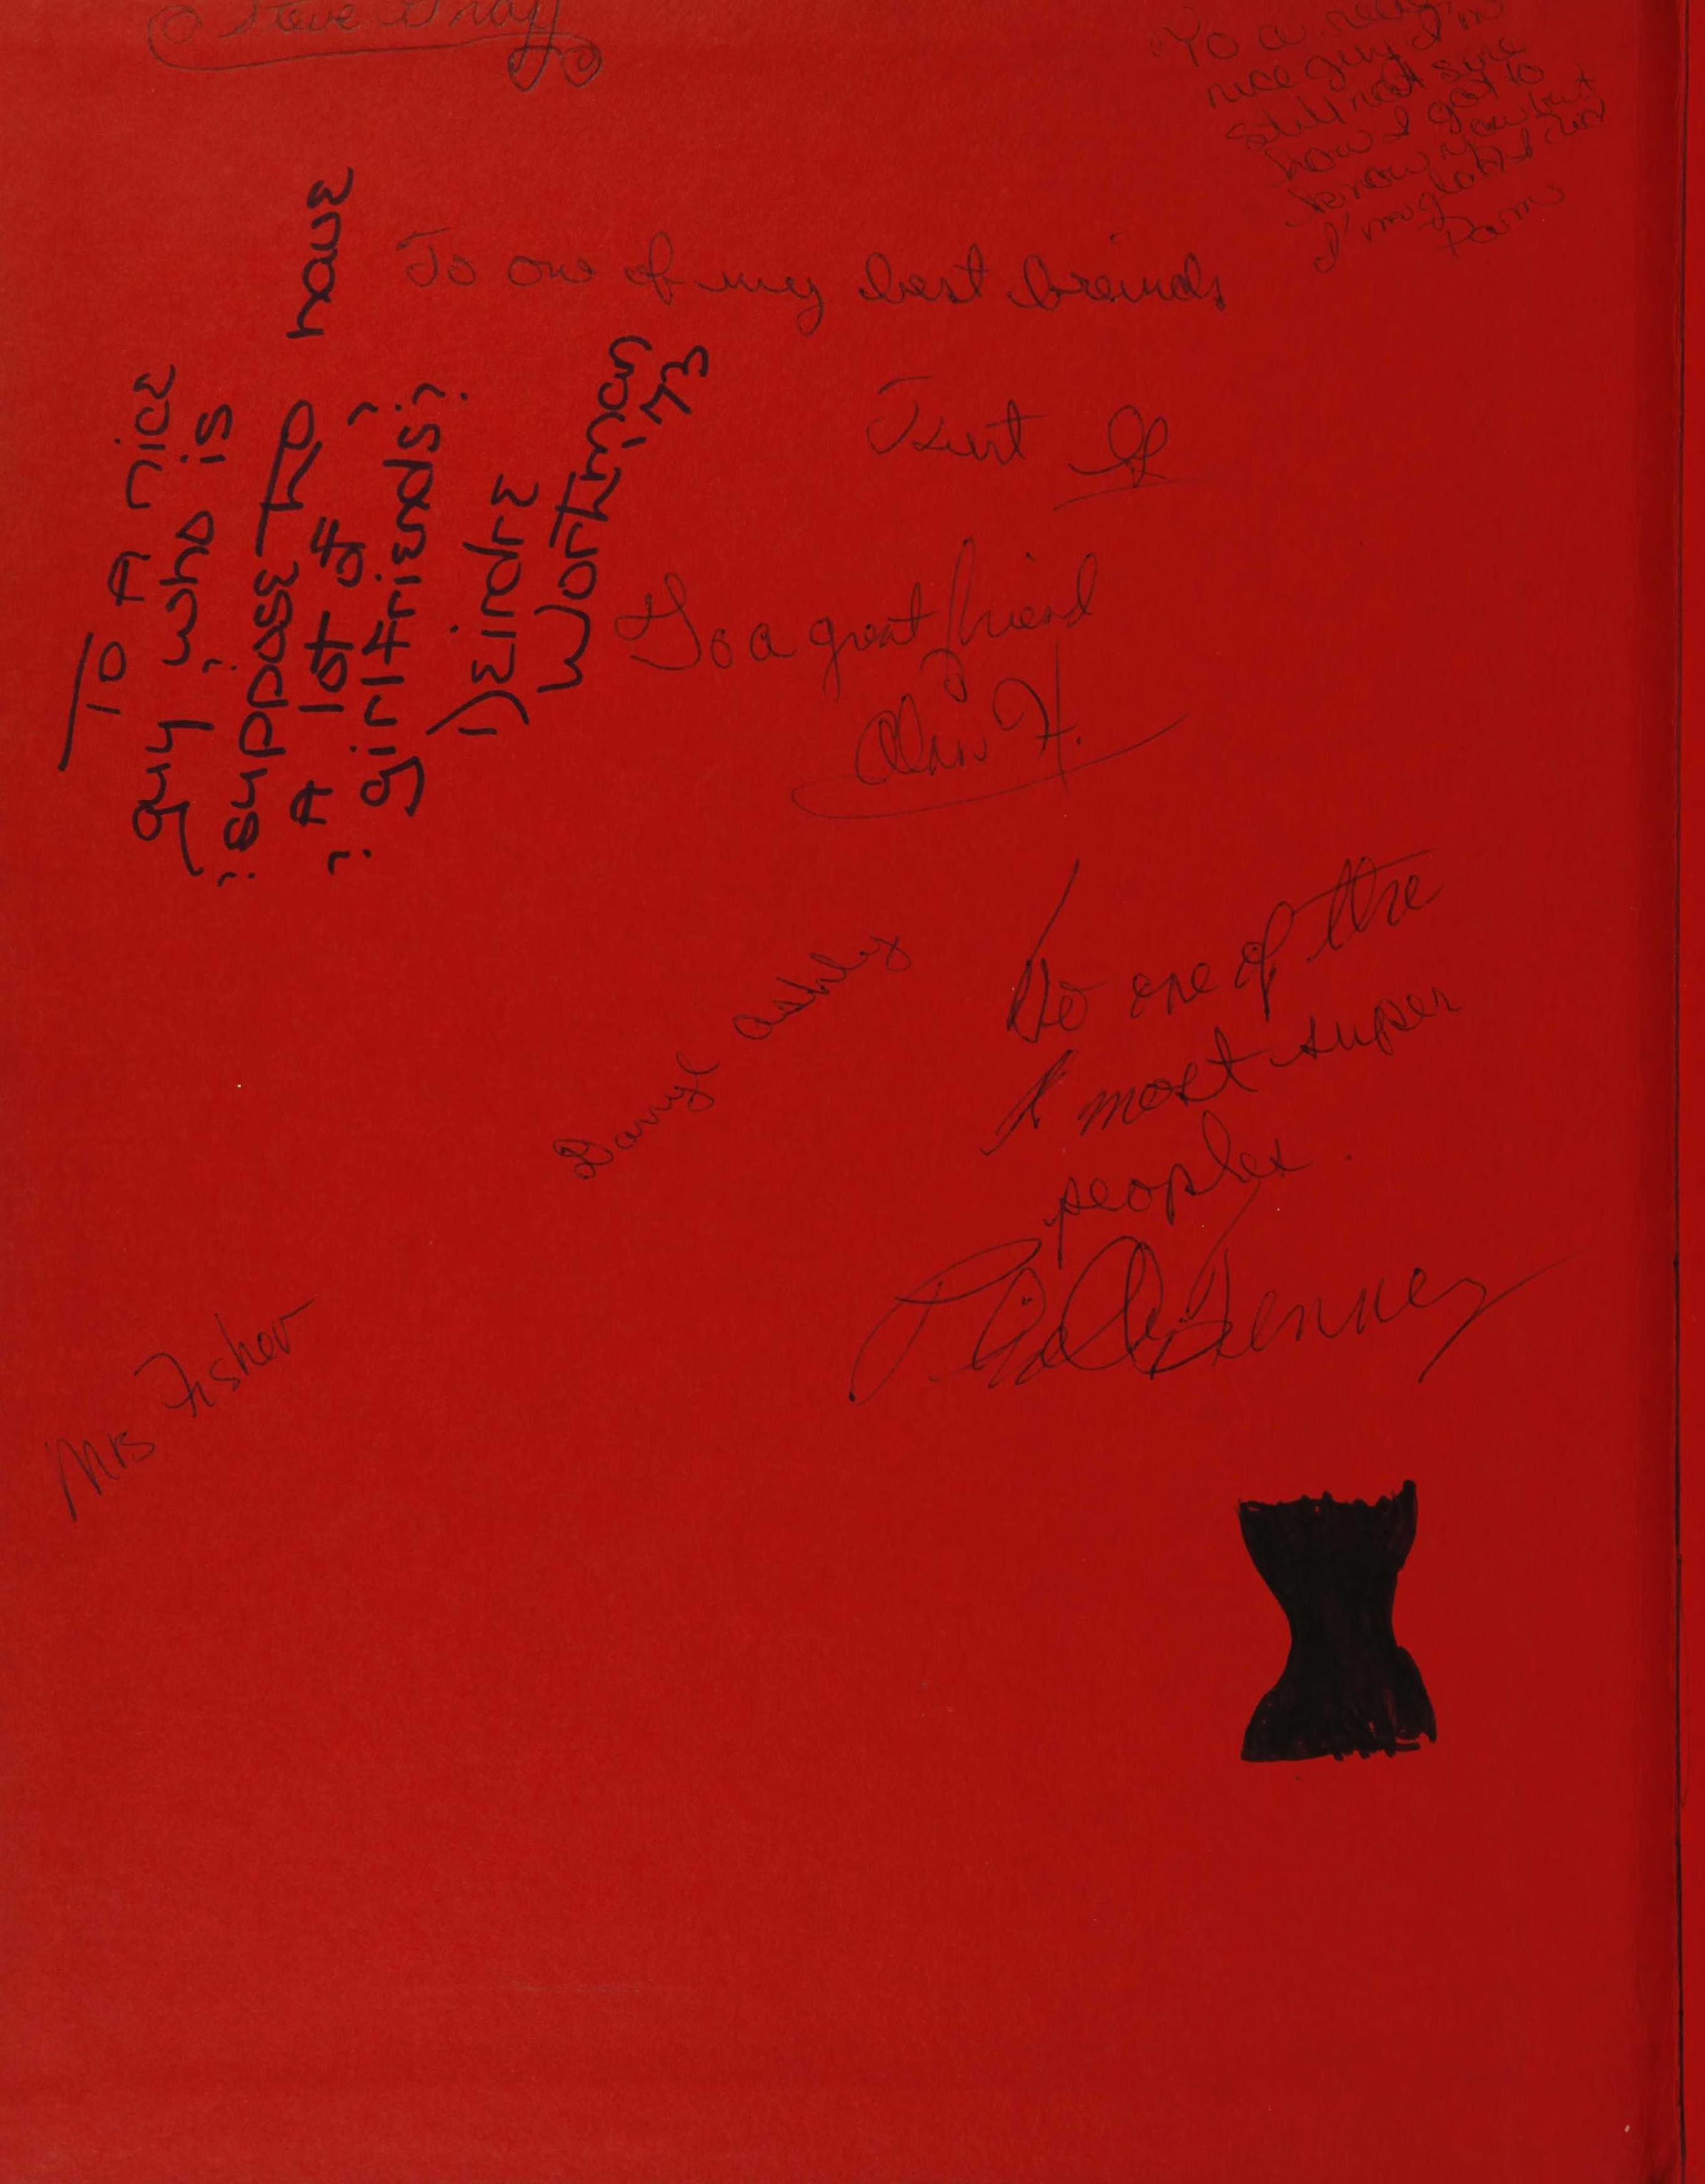 Steve Gray
To a really
nice guy I'm
still not sure
how I got to
know you but
I'm glad I did
Pam
To one of my best breinds
Kurt
To A nice
guy who is
"suppose to have
A lot of
girlfriends"
Deirdre
Workman
'73
To a great friend
Alan H.
Darryl Ashley
To one of the
most super
peoples.
Denney
Mrs Fisher